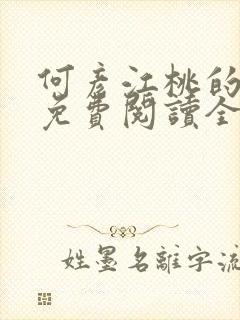 何彥江桃的
免費閱讀全
姓墨名離字流